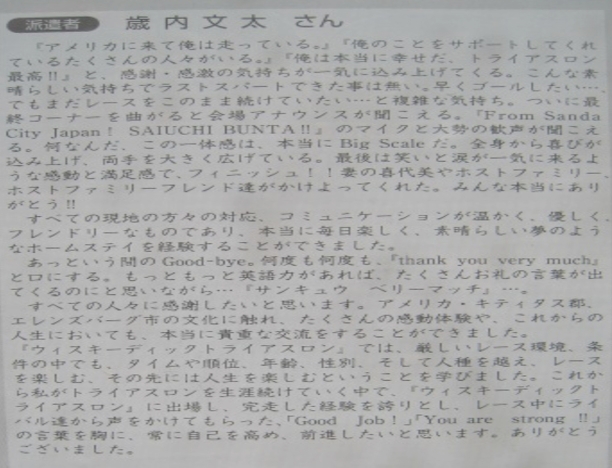 派遣者 歳内文太 さん
『アメリカに来て俺は走っている。』『俺のことをサポートしてくれ
ているたくさんの人々がいる。』『俺は本当に幸せだ、トライアスロン
最高!!』と、感謝・感激の気持ちが一気に込み上げてくる。こんな素
晴らしい気持ちでラストスパートできた事は無い。早くゴールしたい…、
でもまだレースをこのまま続けていたい…と複雑な気持ち。ついに最
終コーナーを曲がると会場アナウンスが聞こえる。『From Sanda
City Japan! SAIUCHI BUNTA!!』のマイクと大勢の歓声が聞こえ
る。何なんだ、この一体感は、本当に Big Scale だ。全身から喜びが
込み上げ、両手を大きく広げている。最後は笑いと涙が一気に来るよ
うな感動と満足感で、フィニッシュ!!妻の喜代美やホストファミリー、
ホストファミリーフレンド達がかけよってくれた。みんな本当にあり
がとう!!
すべての現地の方々の対応、コミュニケーションが温かく、優しく、
フレンドリーなものであり、本当に毎日楽しく、素晴らしい夢のよう
なホームステイを経験することができました。
あっという間のGood-bye。何度も何度も、『thank you very much』
と口にする。もっともっと英語力があれば、たくさんお礼の言葉が出
てくるのにと思いながら…『サンキュウ ベリーマッチ』…。
すべての人々に感謝したいと思います。アメリカ・キティタス郡、
エレンズバーグ市の文化に触れ、たくさんの感動体験や、これからの
人生においても、本当に貴重な交流をすることができました。
『ウィスキーディックトライアスロン』では、厳しいレース環境、条
件の中でも、タイムや順位、年齢、性別、そして人種を越え、レース
を楽しむ、その先には人生を楽しむということを学びました。これか
ら私がトライアスロンを生涯続けていく中で、『ウィスキーディックト
ライアスロン』に出場し、完走した経験を誇りとし、レース中にライ
バル達から声をかけてもらった、「Good Job!」「You are strong!!」
の言葉を胸に、常に自己を高め、前進したいと思います。ありがとう
ございました。